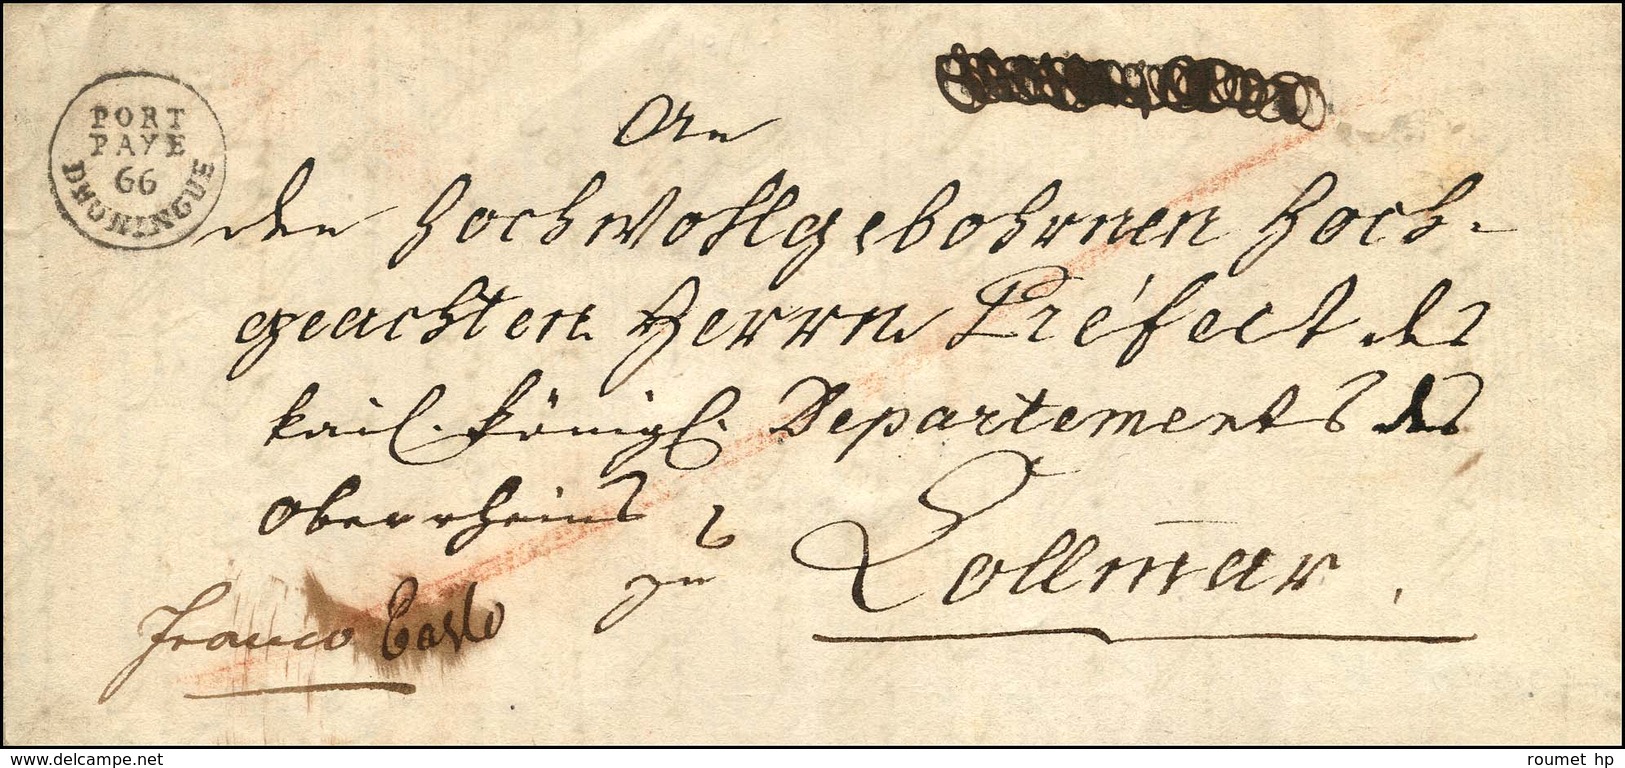 PORT
PAYE
66
DHUNINGUE
An
den Hochwohlgebohrnen Hoch-
geachten Herrn Préfect des
kaiſ. königl. Departements des
Oberrheins
zu Collmar.
Franco Basle
www.delcampe.net
roumet hp